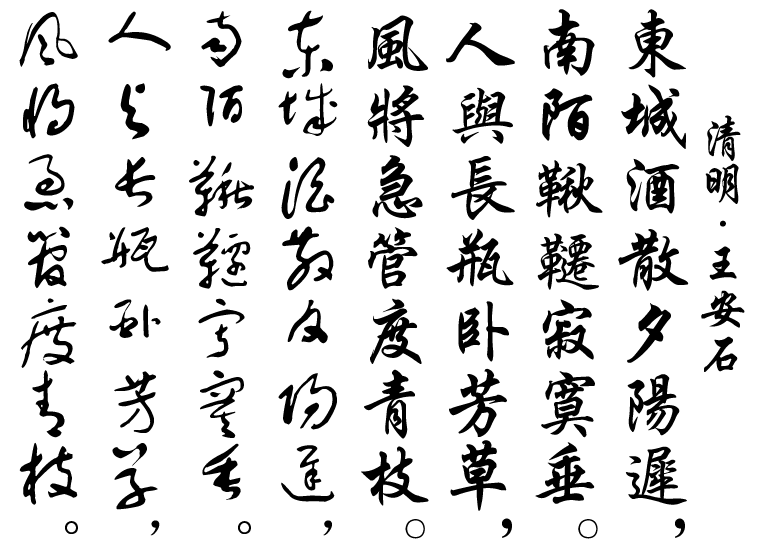 清明·王安石
東城酒散夕陽遲，
南陌鞦韆寂寞垂。
人與長瓶卧芳草，
風將急管度青枝。
東城酒散夕陽遲，
南陌鞦韆寂寞垂。
人與長瓶卧芳草，
風將急管度青枝。